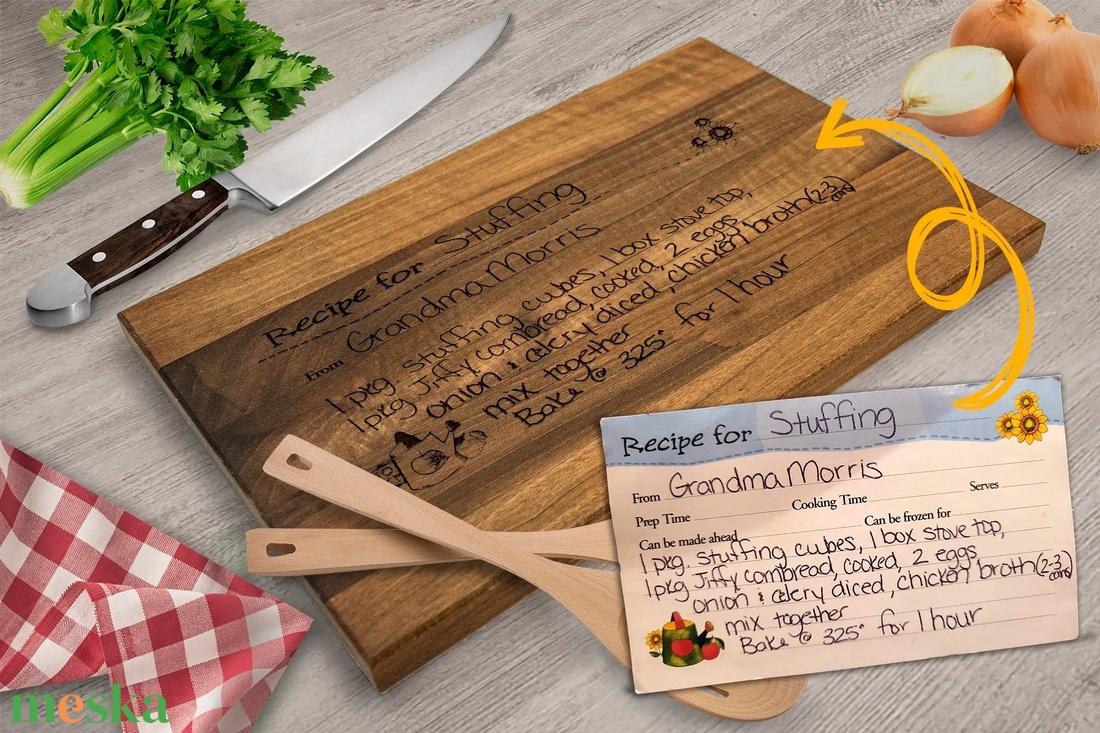 Recipe for Stuffing
From Grandma Morris
1 pkg. stuffing cubes, 1 box stove top,
1 pkg Jiffy cornbread, cooked, 2 eggs
onion & celery diced, chicken broth (2-3 cans)
mix together
Bake @ 325° for 1 hour
Recipe for Stuffing
From Grandma Morris
Prep Time Cooking Time Serves
Can be made ahead Can be frozen for
1 pkg. stuffing cubes, 1 box stove top,
1 pkg Jiffy cornbread, cooked, 2 eggs
onion & celery diced, chicken broth (2-3 cans)
mix together
Bake @ 325° for 1 hour
meska